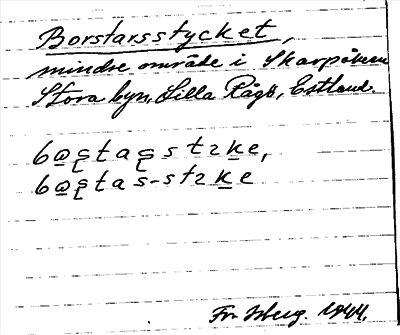 Borstarsstycket,
mindre område i Skarpåkern
Stora byn, Lilla Rågö, Estland.
bɷʂtaʂstɿke,
bɷʂtas-stɿke
Fr. Isberg. 1944.